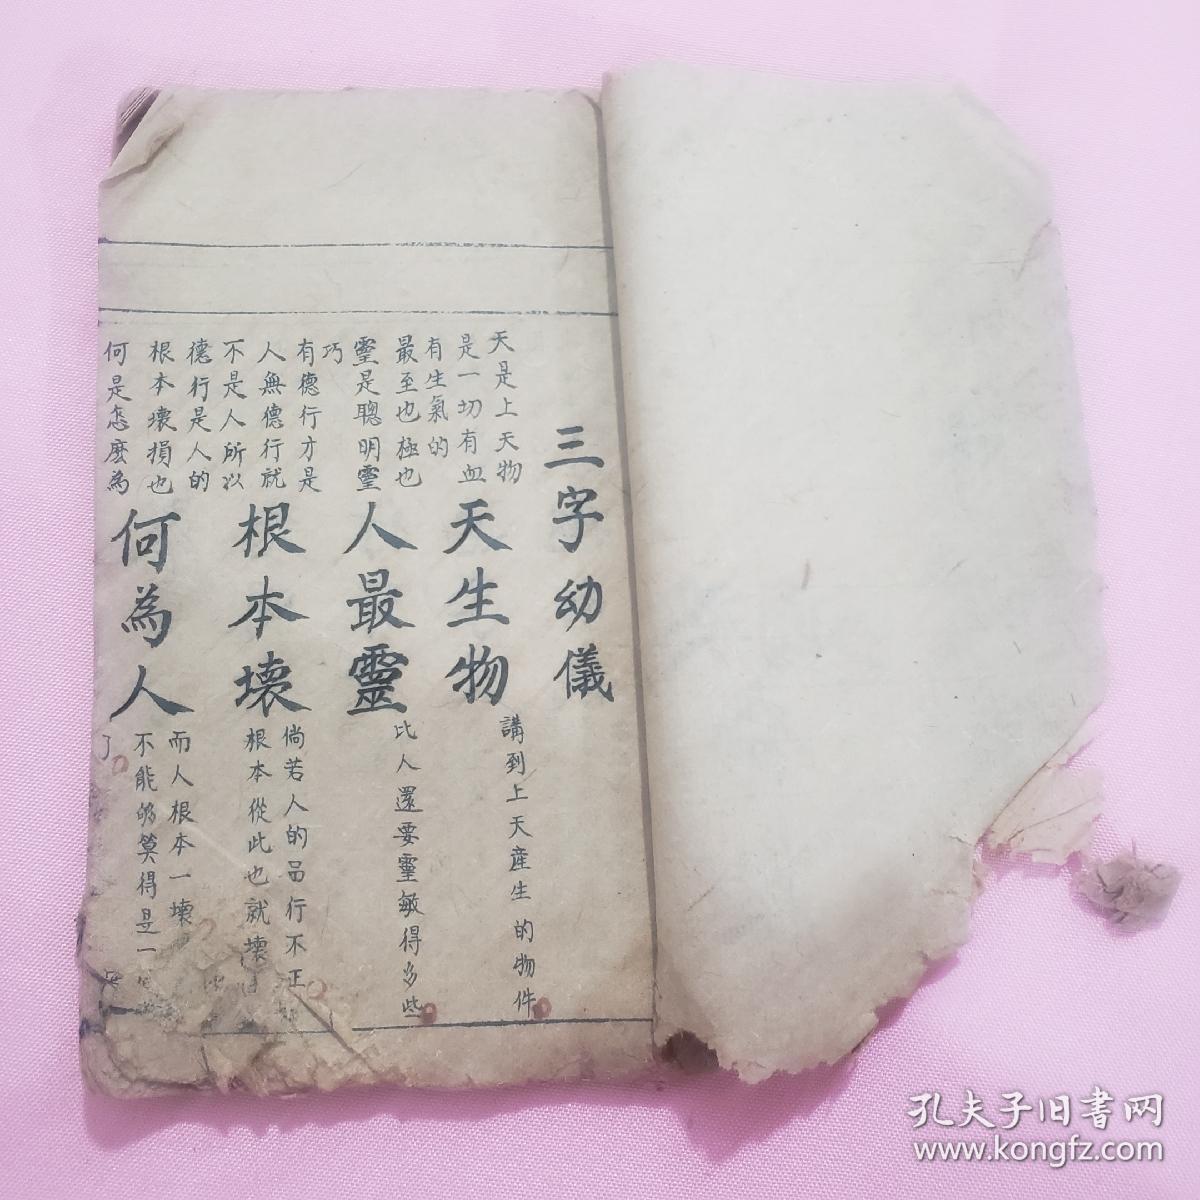 三字幼儀
天是上天物
是一切有血
有生氣的
天生物
講到上天産生的物件
最至也極也
靈是聰明靈
巧
人最靈
比人還要靈敏得多些
有德行才是
人無德行就
不是人所以
德行是人的
根本壞
倘若人的品行不正
根本從此也就壞
根本壞損也
何是怎麽為
何為人
而人根本一壞
不能够算得是一
了
孔夫子旧書网
www.kongfz.com